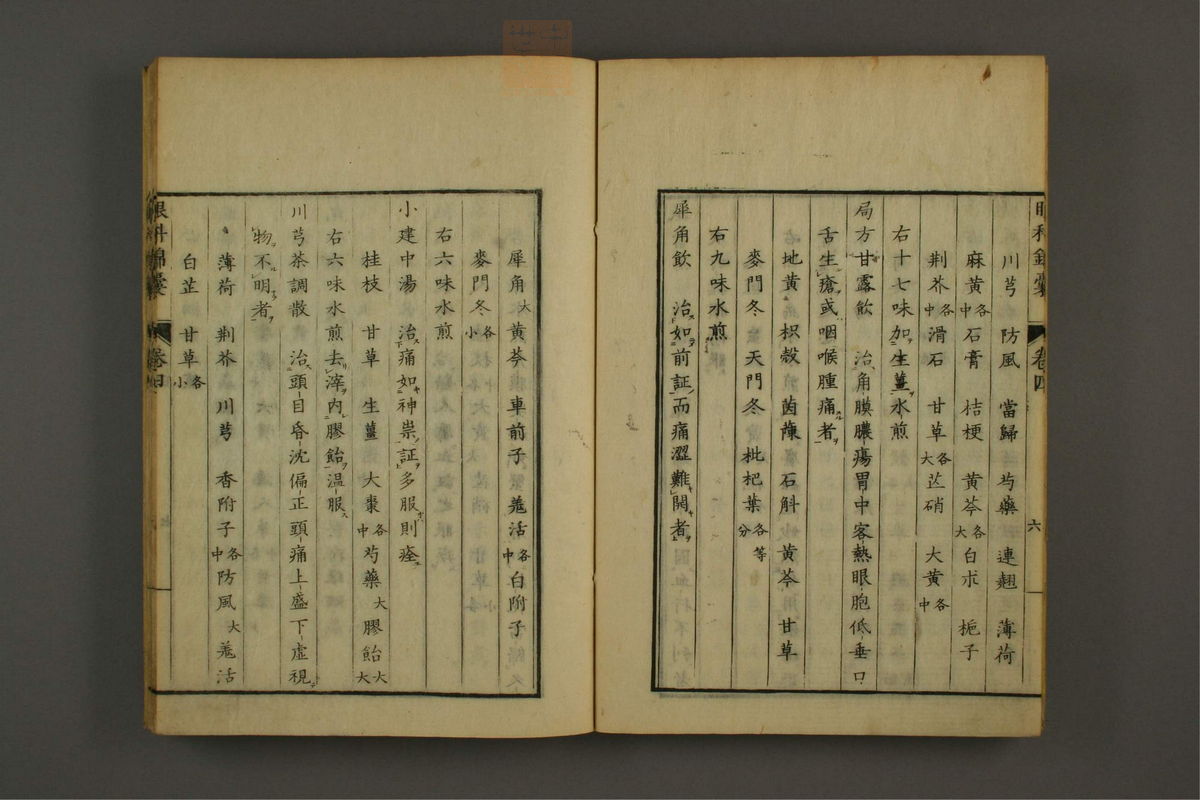 川芎　防風　當歸　芍藥　連翹　薄荷
麻黄各中石膏　桔梗　黄芩各大白朮　梔子
荆芥各中滑石　甘草各大芒硝　大黄各中
右十七味加生薑水煎
局方甘露飲　治角膜膿瘍胃中客熱眼胞低垂口
舌生瘡或咽喉腫痛者
地黄　枳殻　茵蔯　石斛　黄芩　甘草
麥門冬　天門冬　枇杷葉各等分
右九味水煎
犀角飲　治如前証而痛澀難開者
眼科錦囊　卷四　六
犀角大黄芩　車前子　羗活各中白附子
麥門冬各小
右六味水煎
小建中湯　治痛如神祟証多服則痊
桂枝　甘草　生薑　大棗各中芍藥大膠飴大大
右六味水煎去滓内膠飴温服
川芎茶調散　治頭目昏沈偏正頭痛上盛下虚視
物不明者
薄荷　荆芥　川芎　香附子各中防風大羗活
白芷　甘草各小
眼科錦囊　卷四